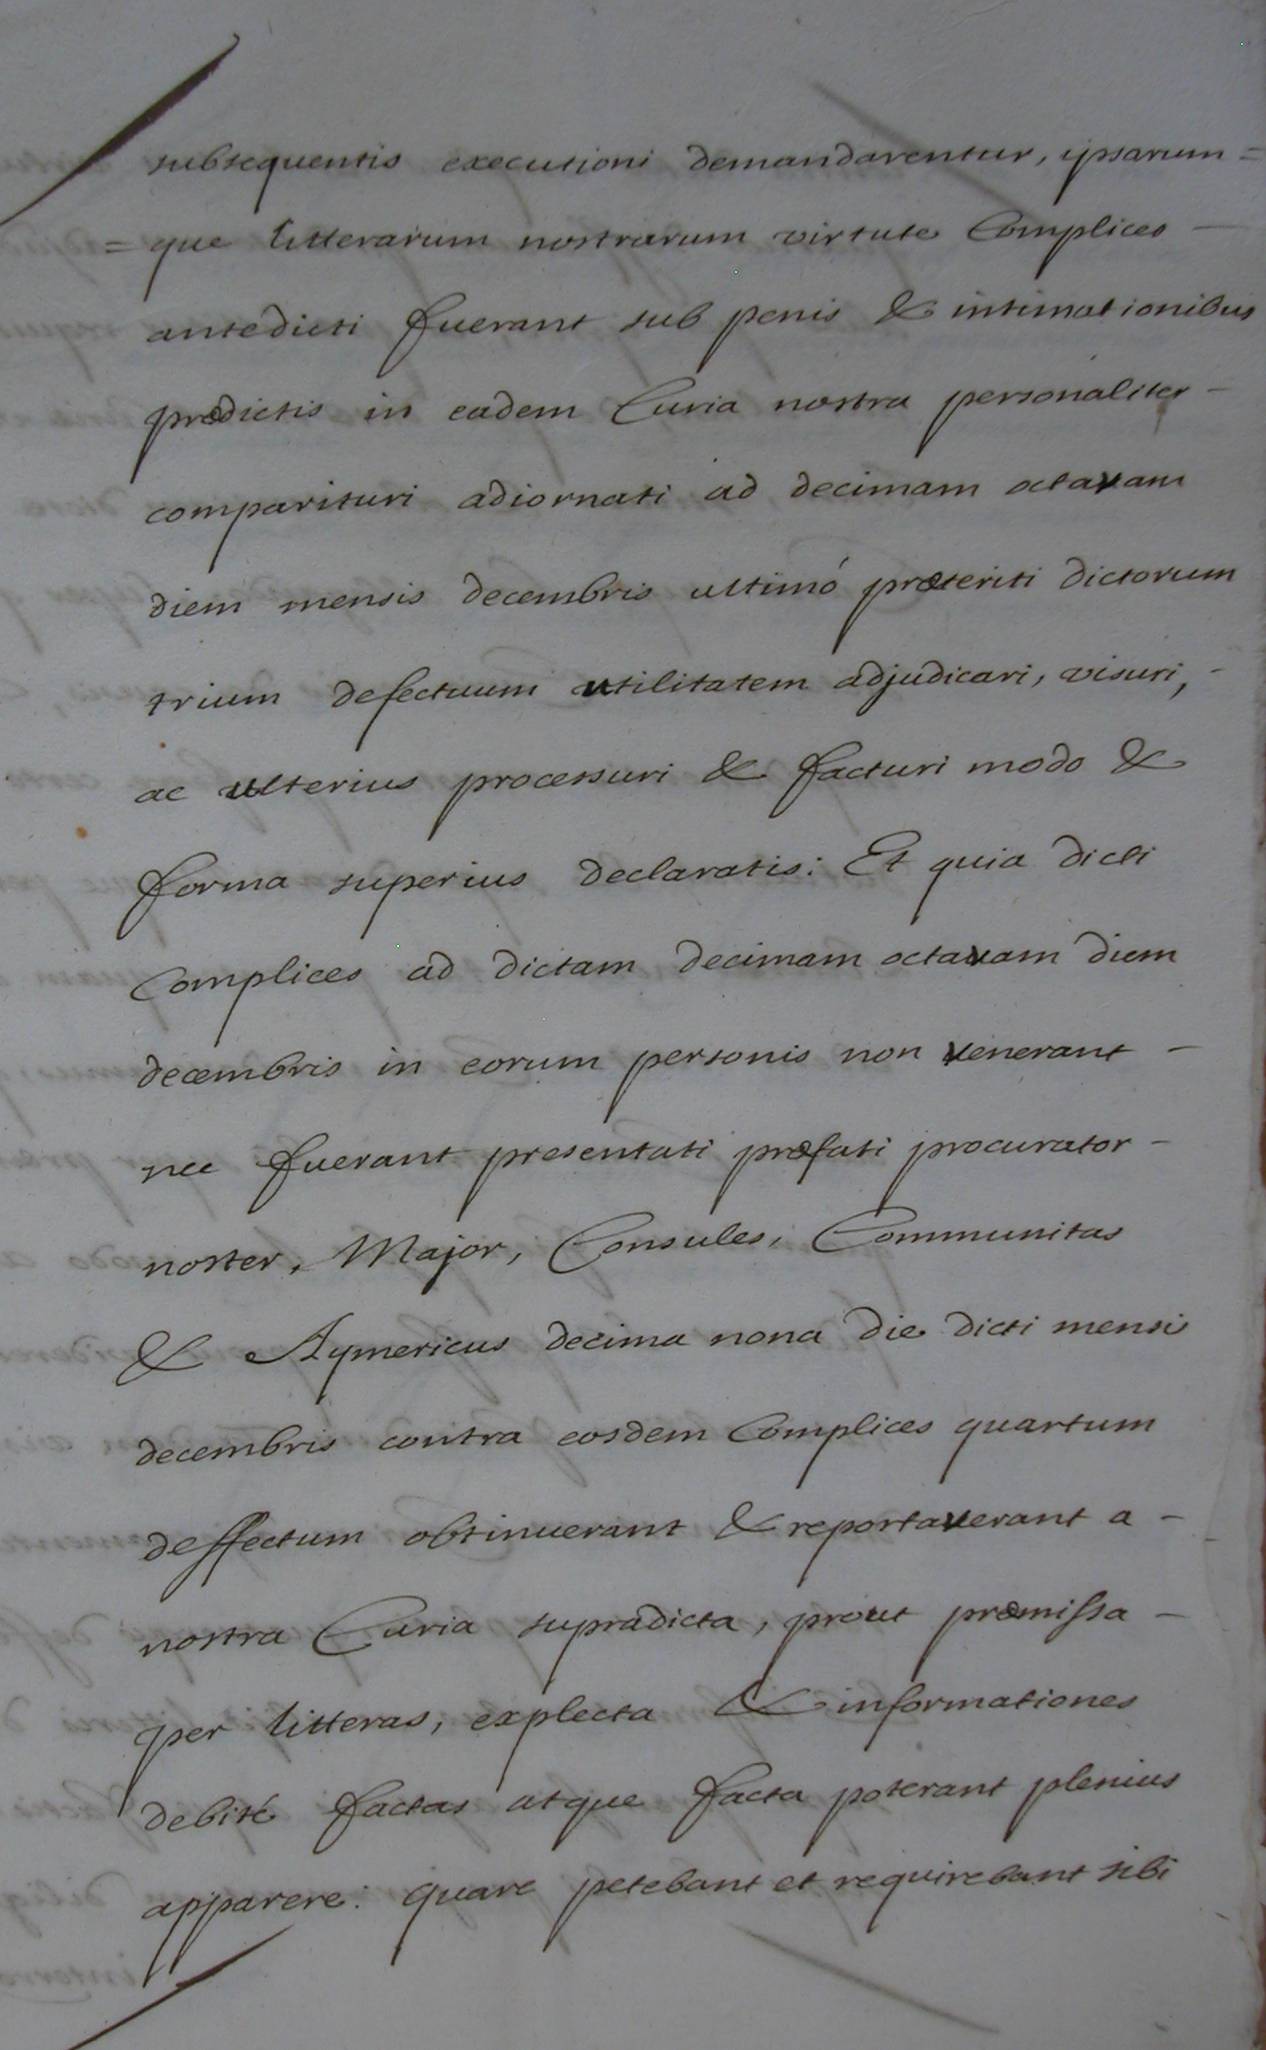 subsequentis executioni demandarentur, ipsarum =
= que litterarum nostrarum virtute Complices -
antedicti fuerant sub penis & intimationibus
prædictis in eadem Curia nostra personaliter -
comparituri adiornati ad decimam octavam
diem mensis decembris ultimó præteriti dictorum
trium defectuum utilitatem adjudicari, visuri, -
ac ulterius processuri & facturi modo &
forma superius declaratis: Et quia dicti
Complices ad dictam decimam octavam diem
decembris in eorum personis non venerant -
nec fuerant presentati præfati procurator -
noster, Major, Consules, Communitas
& Aymericus decima nona die dicti mensis
decembris contra eosdem Complices quartum
deffectum obtinuerant & reportaverant a -
nostra Curia supradicta, prout præmissa -
per litteras, explecta & informationes
debité factas atque facta poterant plenius
apparere: quare petebant et requirebant sibi